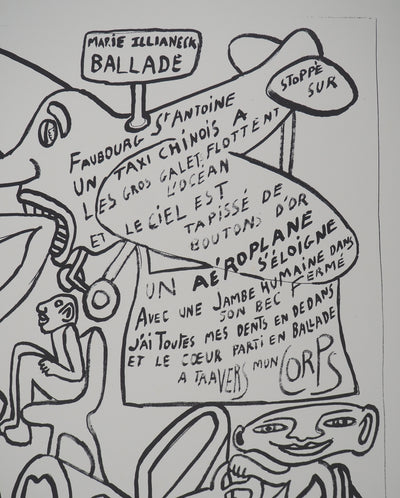 MARIE ILLIANECK
BALLADE
STOPPÉ
SUR
FAUBOURG ST ANTOINE
UN TAXI CHINOIS A
LES GROS GALETS FLOTTENT
L'OCÉAN
ET LE CIEL EST
TAPISSÉ DE
BOUTONS D'OR
UN AÉROPLANE
S'ÉLOIGNE
AVEC UNE JAMBE HUMAINE DANS
SON BEC FERMÉ
J'AI TOUTES MES DENTS EN DEDANS
ET LE CŒUR PARTI EN BALLADE
A TRAVERS MON CORPS